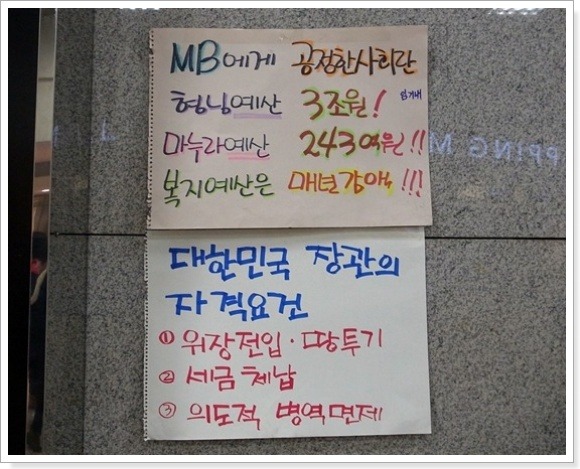 MB에게 공정한사회란
형님예산 3조원! 임기내
마누라예산 243억원!!
복지예산은 매년감액!!!
대한민국 장관의
자격요건
① 위장전입·땅투기
② 세금 체납
③ 의도적 병역면제
PPING M